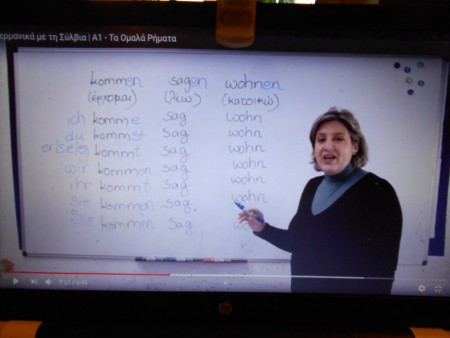 ερμανικά με τη Σύλβια | A1 - Τα Ομαλά Ρήματα
kommen sagen wohnen
(έρχομαι) (λέω) (κατοικώ)
ich komme sag wohn
du kommst sag wohn
er/sie/es kommt sag wohn
wir kommen sag wohn
ihr kommt sag wohn
sie kommen sag wohn
Sie kommen sag
hp